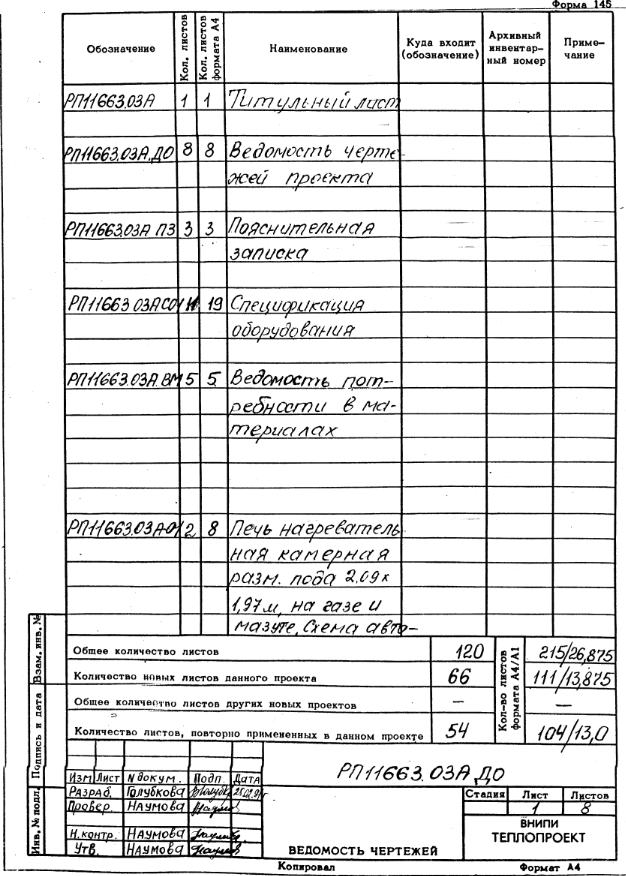 Форма 145
Обозначение Кол. листов Кол. листов формата А4 Наименование Куда входит (обозначение) Архивный инвентарный номер Примечание
РП11663.03А 1 1 Титульный лист
РП11663.03А.ДО 8 8 Ведомость черте
жей проекта
РП11663.03А ПЗ 3 3 Пояснительная
записка
РП11663.03АСО1 11 19 Спецификация
оборудования
РП11663.03А.ВМ 5 5 Ведомость пот-
ребности в ма-
териалах
РП11663.03А-01 2 8 Печь нагреватель
ная камерная
разм. пода 2,09х
1,97м, на газе и
мазуте. Схема авто-
Общее количество листов 120 215/26,875
Количество новых листов данного проекта 66 111/13,875
Общее количество листов других новых проектов — —
Количество листов, повторно примененных в данном проекте 54 104/13,0
Кол-во листов формата А4/А1
Взам. инв. №
Подпись и дата
Инв. № подл.
РП11663.03А ДО
Изм Лист № докум. Подп Дата
Разраб. Голубкова
Провер. Наумова
Н.контр. Наумова
Утв. Наумова
ВЕДОМОСТЬ ЧЕРТЕЖЕЙ
Стадия Лист Листов
1 8
ВНИПИ
ТЕПЛОПРОЕКТ
Копировал Формат А4